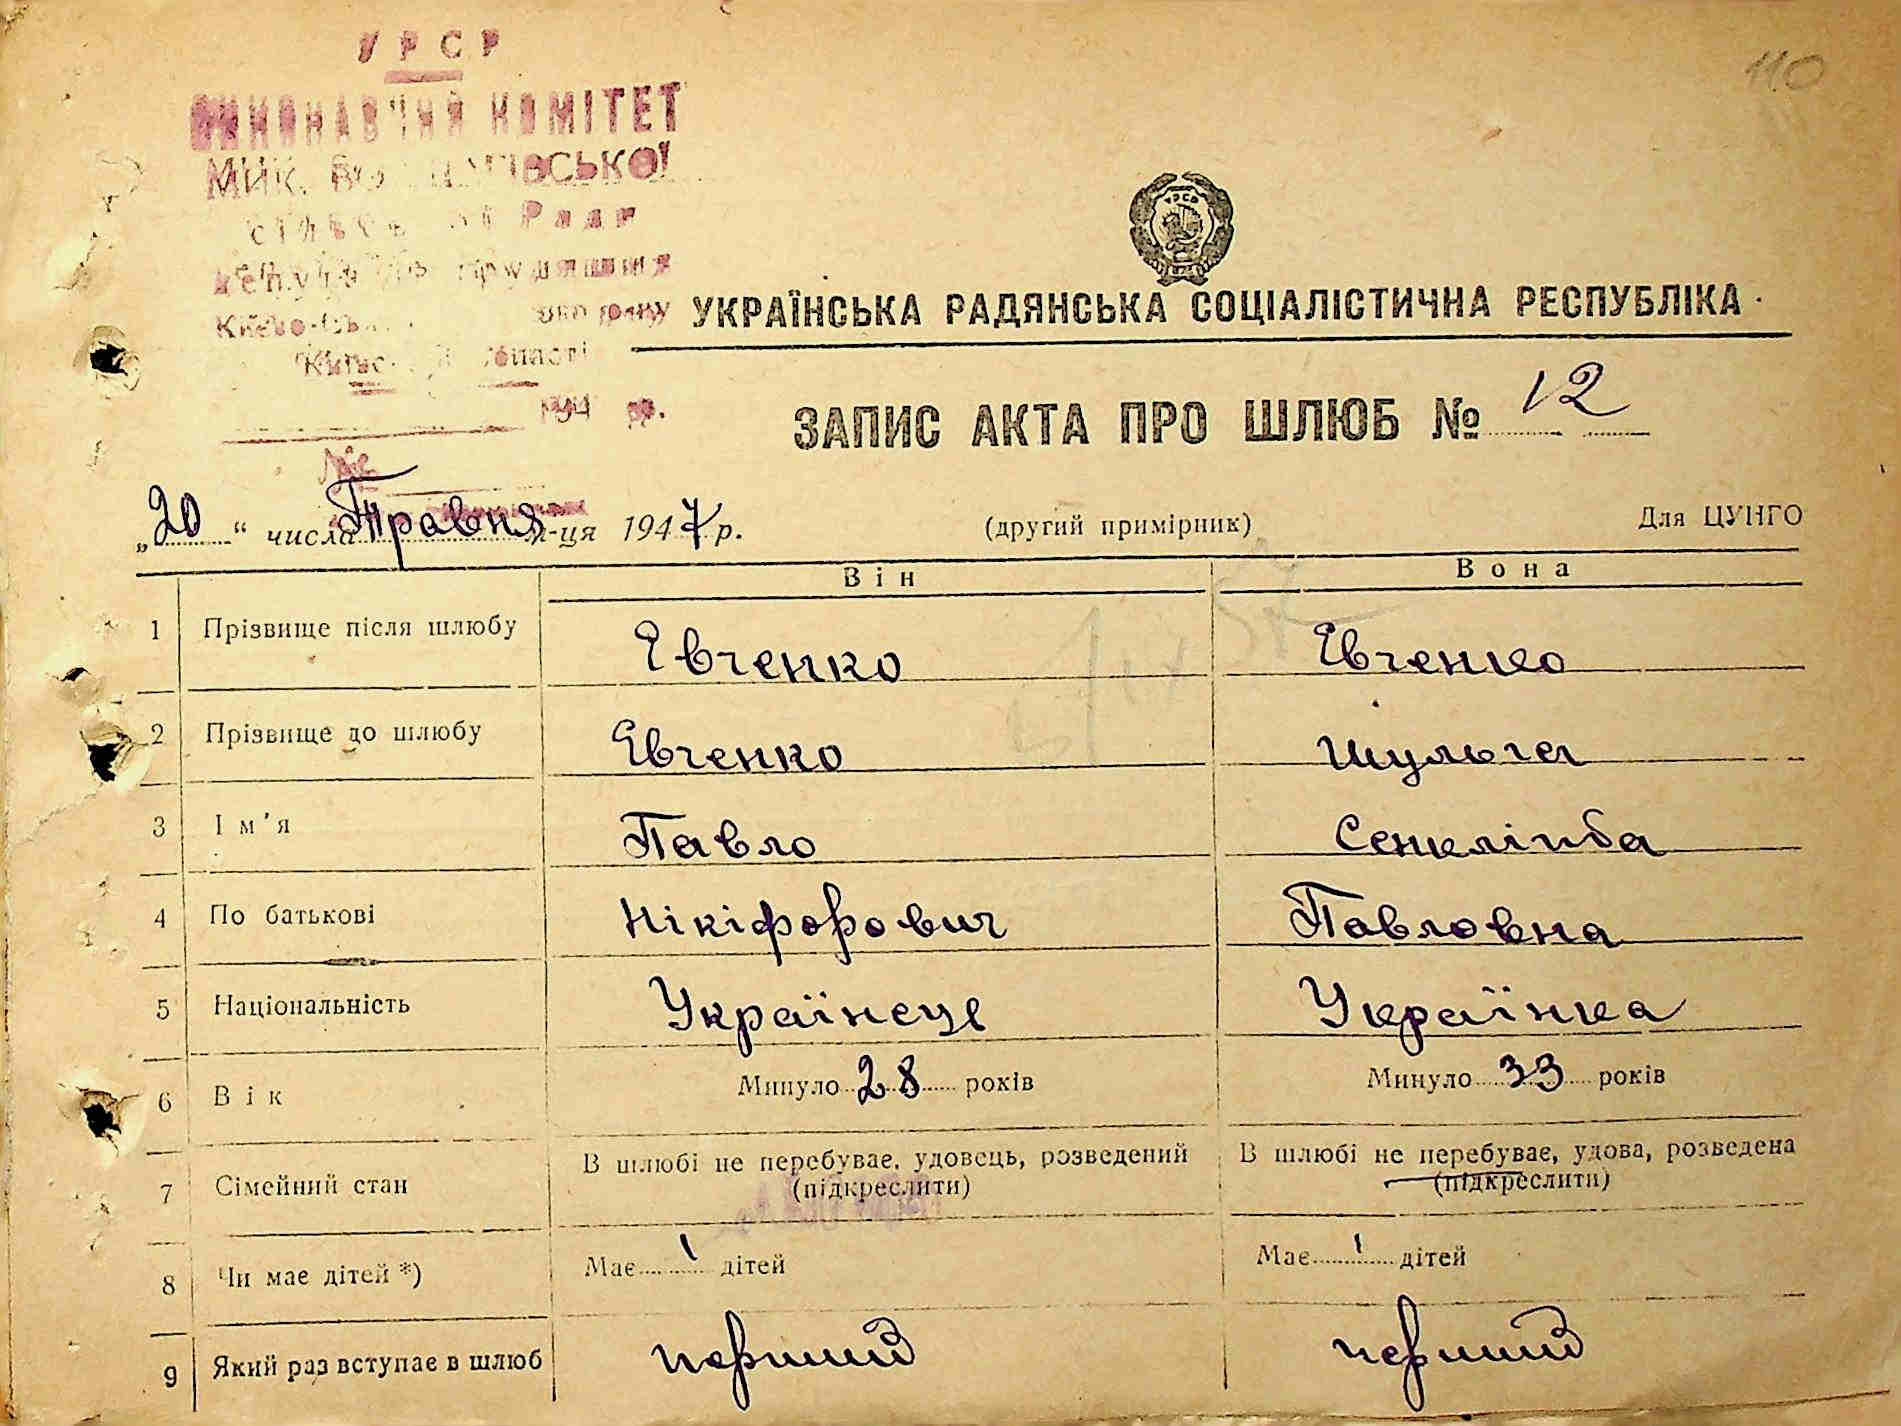 110
УРСР
ВИКОНАВЧИЙ КОМІТЕТ
МИК.
Ради
Києво-
194 р.
УРСР
УКРАЇНСЬКА РАДЯНСЬКА СОЦІАЛІСТИЧНА РЕСПУБЛІКА
ЗАПИС АКТА ПРО ШЛЮБ № 12
„20“ числа Травня м-ця 1947 р.
(другий примірник)
Для ЦУНГО
Він
Вона
1 Прізвище після шлюбу Євченко Євченко
2 Прізвище до шлюбу Євченко Шульга
3 Ім'я Павло
4 По батькові Нікіфорович Павловна
5 Національність Українець Українка
6 Вік Минуло 28 років Минуло 33 років
7 Сімейний стан В шлюбі не перебуває, удовець, розведений В шлюбі не перебуває, удова, розведена
(підкреслити) (підкреслити)
8 Чи має дітей *) Має 1 дітей Має 1 дітей
9 Який раз вступає в шлюб перший перший